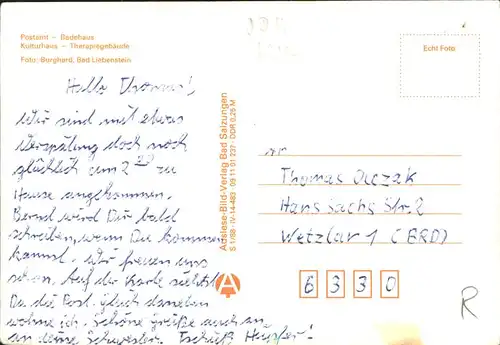 Postamt – Badehaus
Kulturhaus – Therapiegebäude
Foto: Burghard, Bad Liebenstein
Hallo Thomas!
Wir sind mit etwas
Verspätung doch noch
glücklich um 2 20 zu
Hause angekommen.
Bernd wird Dir bald
schreiben, wenn Du kommen
kannst. Wir freuen uns
schon. Auf der Karte siehst
Du die Post. gleich daneben
wohne ich. Schöne Grüße auch an
an deine Schwester. Tschüß Hüpfer!
Adslese-Bild-Verlag Bad Salzungen
S 1/88 · IV-14-483 09 11 01 237 · DDR 0,25 M
Echt Foto
An
Thomas
Hans Sachs Str. 2
Wetzlar 1 (BRD)
6 3 3 0
A
R